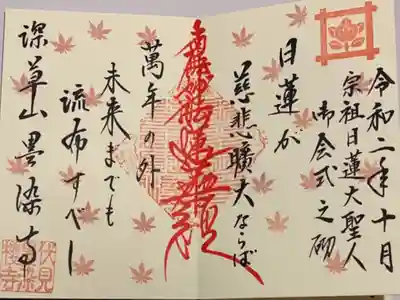 令和二年十月
宗祖日蓮大聖人
御会式之砌
日蓮が
慈悲曠大ならば
南無妙法蓮華經
萬年の外
未来までも
流布すべし
深草山墨染寺
伏見